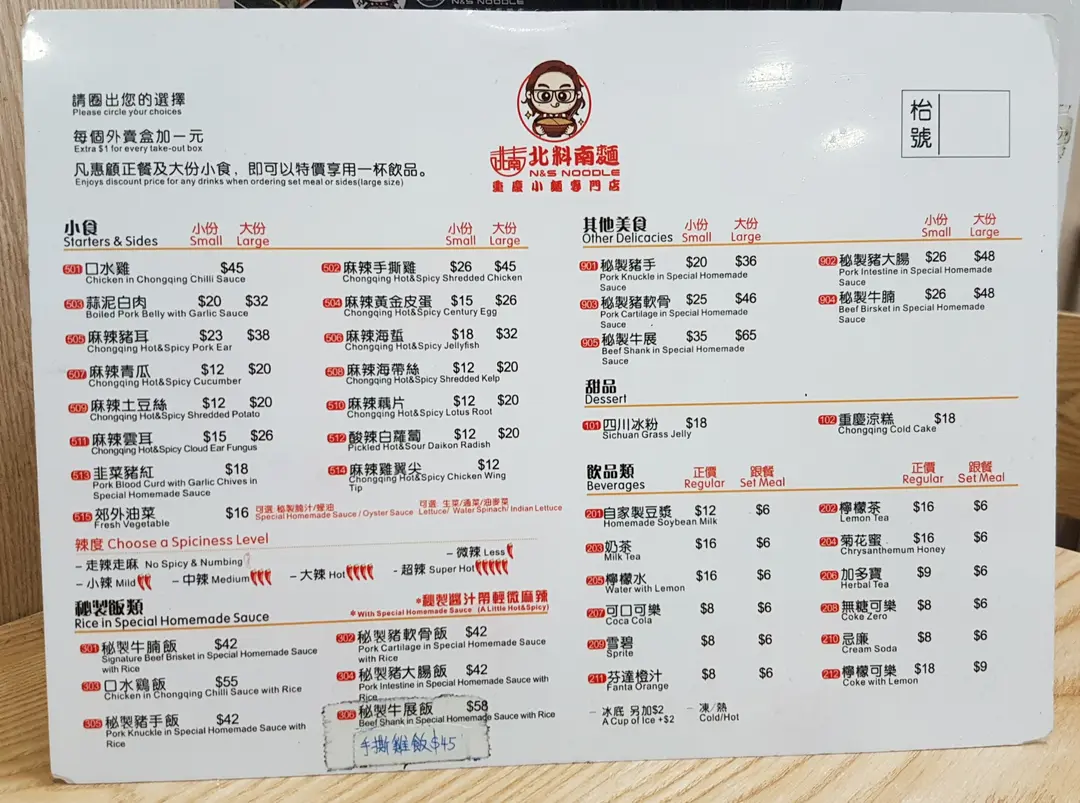 N&S NOODLE
請圈出您的選擇
Please circle your choices
每個外賣盒加一元
Extra $1 for every take-out box
凡惠顧正餐及大份小食，即可以特價享用一杯飲品。
Enjoys discount price for any drinks when ordering set meal or sides(large size)
北料南麵
N&S NOODLE
重慶小麵專門店
枱號
小食 小份 大份 小份 大份
Starters & Sides Small Large Small Large
501 口水雞 $45
Chicken in Chongqing Chilli Sauce
502 麻辣手撕雞 $26 $45
Chongqing Hot&Spicy Shredded Chicken
503 蒜泥白肉 $20 $32
Boiled Pork Belly with Garlic Sauce
504 麻辣黃金皮蛋 $15 $26
Chongqing Hot&Spicy Century Egg
505 麻辣豬耳 $23 $38
Chongqing Hot&Spicy Pork Ear
506 麻辣海蜇 $18 $32
Chongqing Hot&Spicy Jellyfish
507 麻辣青瓜 $12 $20
Chongqing Hot&Spicy Cucumber
508 麻辣海帶絲 $12 $20
Chongqing Hot&Spicy Shredded Kelp
509 麻辣土豆絲 $12 $20
Chongqing Hot&Spicy Shredded Potato
510 麻辣藕片 $12 $20
Chongqing Hot&Spicy Lotus Root
511 麻辣雲耳 $15 $26
Chongqing Hot&Spicy Cloud Ear Fungus
512 酸辣白蘿蔔 $12 $20
Pickled Hot&Sour Daikon Radish
513 韭菜豬紅 $18
Pork Blood Curd with Garlic Chives in
Special Homemade Sauce
514 麻辣雞翼尖 $12
Chongqing Hot&Spicy Chicken Wing
Tip
515 郊外油菜 $16
Fresh Vegetable
可選 秘製醬汁/蠔油
Special Homemade Sauce / Oyster Sauce
可選 生菜/通菜/油麥菜
Lettuce/ Water Spinach/ Indian Lettuce
辣度 Choose a Spiciness Level
– 走辣走麻 No Spicy & Numbing
– 微辣 Less
– 小辣 Mild – 中辣 Medium – 大辣 Hot – 超辣 Super Hot
秘製飯類
Rice in Special Homemade Sauce
*秘製醬汁帶輕微麻辣
* With Special Homemade Sauce (A Little Hot&Spicy)
301 秘製牛腩飯 $42
Signature Beef Brisket in Special Homemade Sauce
with Rice
302 秘製豬軟骨飯 $42
Pork Cartilage in Special Homemade Sauce
with Rice
303 口水鷄飯 $55
Chicken in Chongqing Chilli Sauce with Rice
304 秘製豬大腸飯 $42
Pork Intestine in Special Homemade Sauce with
Rice
305 秘製豬手飯 $42
Pork Knuckle in Special Homemade Sauce with
Rice
306 秘製牛展飯 $58
Beef Shank in Special Homemade Sauce with Rice
手撕雞飯$45
其他美食 小份 大份 小份 大份
Other Delicacies Small Large Small Large
901 秘製豬手 $20 $36
Pork Knuckle in Special Homemade
Sauce
902 秘製豬大腸 $26 $48
Pork Intestine in Special Homemade
Sauce
903 秘製豬軟骨 $25 $46
Pork Cartilage in Special Homemade
Sauce
904 秘製牛腩 $26 $48
Beef Birsket in Special Homemade
Sauce
905 秘製牛展 $35 $65
Beef Shank in Special Homemade
Sauce
甜品
Dessert
101 四川冰粉 $18
Sichuan Grass Jelly
102 重慶涼糕 $18
Chongqing Cold Cake
飲品類 正價 跟餐 正價 跟餐
Beverages Regular Set Meal Regular Set Meal
201 自家製豆漿 $12 $6
Homemade Soybean Milk
202 檸檬茶 $16 $6
Lemon Tea
203 奶茶 $16 $6
Milk Tea
204 菊花蜜 $16 $6
Chrysanthemum Honey
205 檸檬水 $16 $6
Water with Lemon
206 加多寶 $9 $6
Herbal Tea
207 可口可樂 $8 $6
Coca Cola
208 無糖可樂 $8 $6
Coke Zero
209 雪碧 $8 $6
Sprite
210 忌廉 $8 $6
Cream Soda
211 芬達橙汁 $8 $6
Fanta Orange
212 檸檬可樂 $18 $9
Coke with Lemon
– 冰底 另加$2
A Cup of Ice +$2
– 凍/熱
Cold/Hot